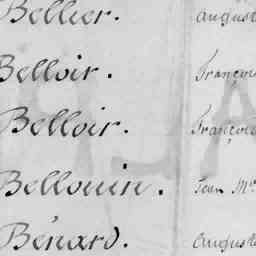 Bellier. August
Belloir. François
Belloir. François
Bellouin. Jean M.
Bénard. Auguste